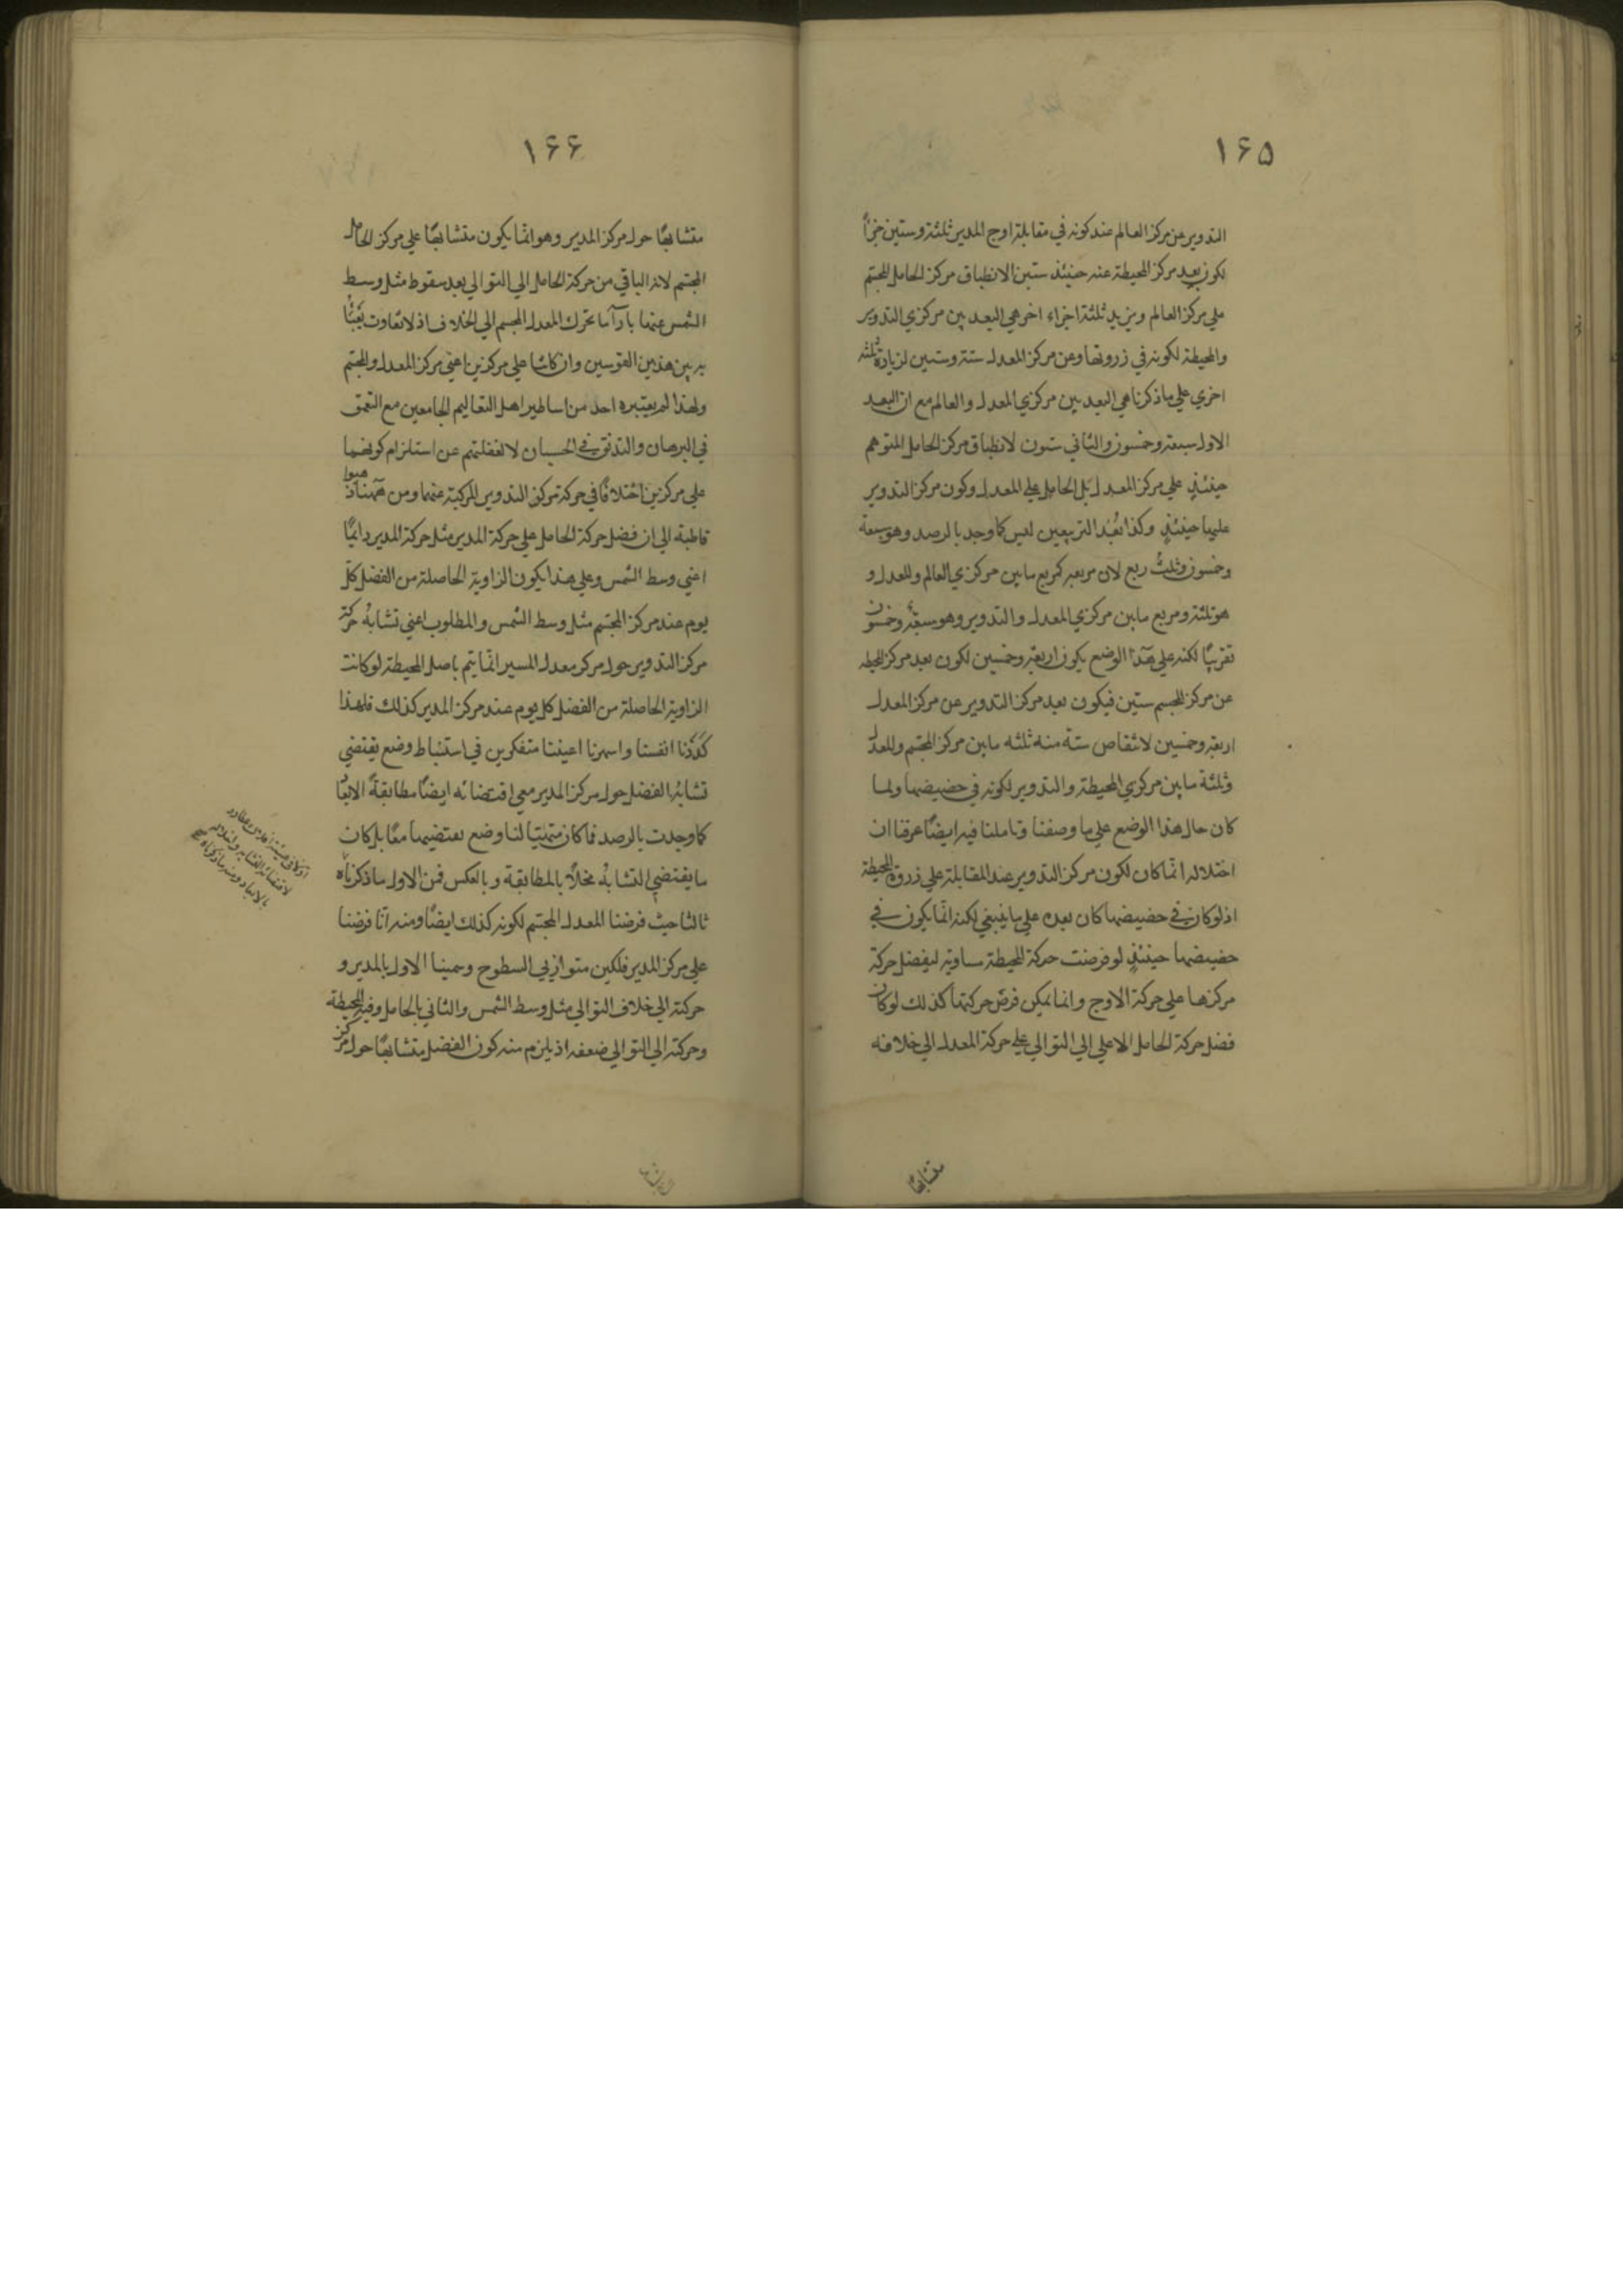 ١۶۵
التدوير عن مركز العالم عند كونه في مقابلة اوج المدير ثلثة وستين جزأً
لكون بعد مركز المحيطة عنه حينئذ ستين لانطباق مركز الحامل المجسم
علي مركز العالم ويزيد ثلثة اجزاء اخر هي البعد بين مركزي التدوير
والمحيطة لكونه في زروتها وعن مركز المعدل ستة وستين لزيادة ثلثة
اخري علي ما ذكرنا هي البعد بين مركزي المعدل والعالم مع ان البعد
الاول سبعة وخمسون والثاني ستون لانطباق مركز الحامل المتوهم
حينئذٍ علي مركز المعدل بل الحامل علي المعدل وكون مركز التدوير
عليها حينئذٍ وكذا بُعْد التربيعين ليس كما وجد بالرصد وهو سبعة
وخمسون وثلثُ ربع لان مربعه كمربع ما بين مركزي العالم والمعدل و
هو ثلثة ومربع ما بين مركزي المعدل والتدوير وهو سبعة وخمسون
تقريبًا لكنه علي هذا الوضع يكون اربعة وخمسين لكون بعد مركز المحيطة
عن مركز المجسم ستين فيكون بعد مركز التدوير عن مركز المعدل
اربعة وخمسين لانتقاص ستة منه ثلثه ما بين مركز المجسم والمعدل
وثلثة ما بين مركزي المحيطة والتدوير لكونه في حضيضها ولما
كان حال هذا الوضع علي ما وصفنا وتاملنا فيه ايضًا عرفنا ان
اختلاله انّما كان لكون مركز التدوير عند المقابلة علي زروة المحيطة
اذ لو كان في حضيضها كان بعده علي ما ينبغي لكنه انّما يكون في
حضيضها حينئذٍ لو فرضت حركة المحيطة مساوية لفضل حركة
مركزها علي حركة الاوج وانما يمكن فرض حركتها كذلك لو كان
فضل حركة الحامل الاعلي الي التوالي علي حركة المعدل الي خلافه
متشابهًا
١۶۶
متشابهًا حول مركز المدير وهو انّما يكون متشابهًا علي مركز الحامل
المجسم لانه الباقي من حركة الحامل الي التوالي بعد سقوط مثل وسط
الشمس عنها بازآء ما تحرك المعدل المجسم الي الخلاف اذ لا تفاوت
بين هذين القوسين وان كانتا علي مركزين اعني مركز المعدل والمجسم
ولهذا لم يعتبره احد من اساطير اهل التعاليم الجامعين مع التعمق
في البرهان والتدنق في الحسبان لا لغفلتهم عن استلزام كونهما
علي مركزين اختلافًا في حركة مركز التدوير المركبة عنهما ومن ههنا ذهبوا
قاطبة الي ان فضل حركة الحامل علي حركة المدير مثل حركة المدير دائمًا
اعني وسط الشمس وعلي هذا يكون الزاوية الحاصلة من الفضل كلّ
يوم عند مركز المجسم مثل وسط الشمس والمطلوب اعني تشابُه حركة
مركز التدوير حول مركز معدل المسير انّما يتم باصل المحيطة لو كانت
الزاوية الحاصلة من الفضل كل يوم عند مركز المدير كذلك فلهذا
كدّدنا انفسنا واسهرنا اعيننا متفكرين في استنباط وضع يقتضي
تشابُه الفضل حول مركز المدير مع اقتضائه ايضًا مطابقةً الابعاد
كما وجدت بالرصد فما كان متهيّئا لنا وضع يقتضيهما معًا بل كان
ما يقتضي التشابُه مخلًا بالمطابقة وبالعكس فمن الاول ما ذكرناه
ثالثا حيث فرضنا المعدل المجسم لكونه كذلك ايضًا ومنه انّا فرضنا
علي مركز المدير فلكين متوازيي السطوح وسمينا الاول بالمدير و
حركته الي خلاف التوالي مثل وسط الشمس والثاني بالحامل وفيه المحيطة
وحركته الي التوالي ضعفه اذ يلزم منه كون الفضل متشابهًا حول مركز
بالابعاد ومنه ما ذكرناه